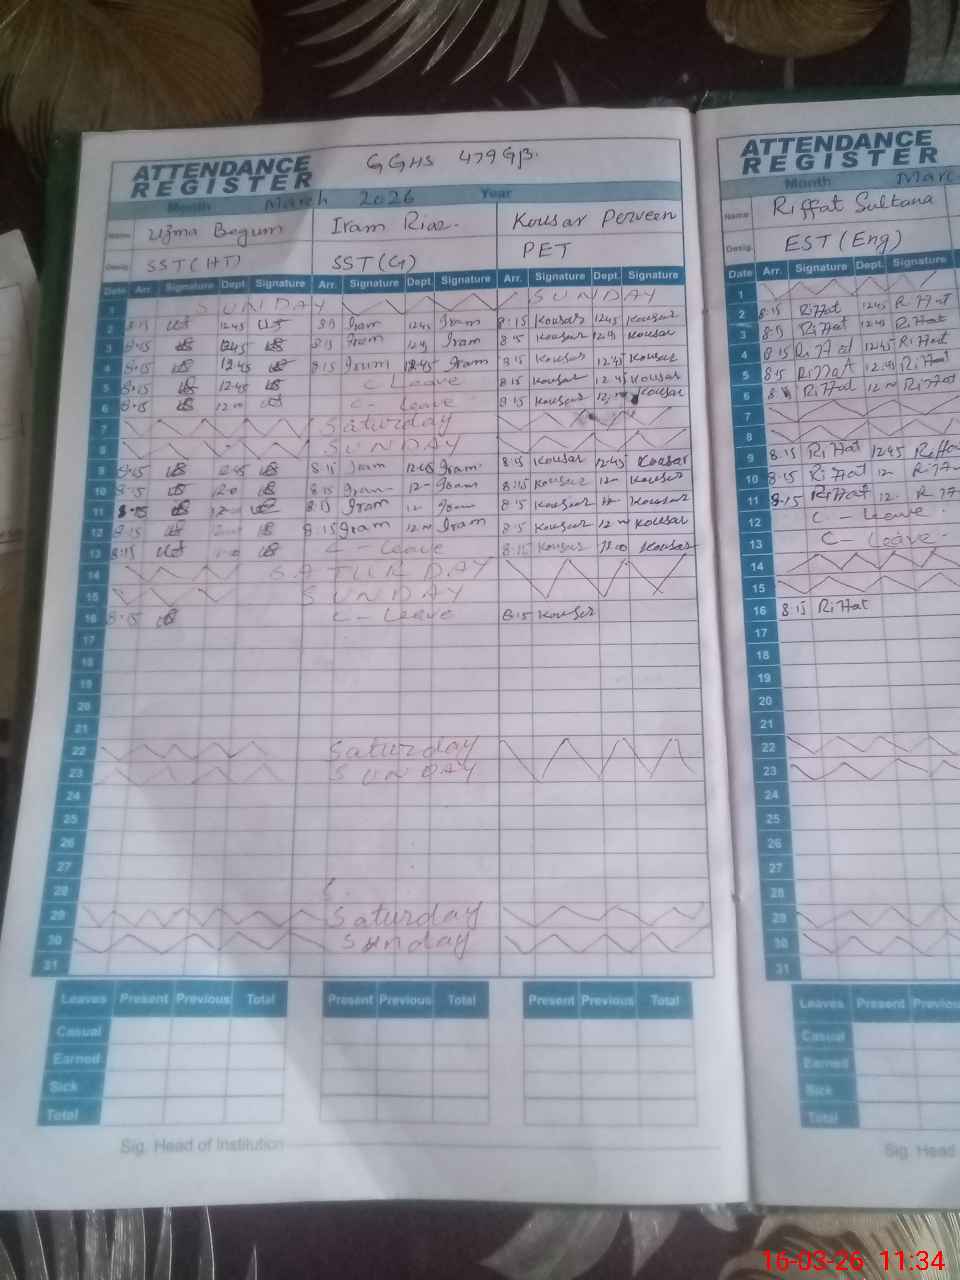 ATTENDANCE REGISTER GGHS 479 GB.
Month March 2026 Year
Name Uzma Begum Iram Riaz. Kousar Perveen
Desig. SST (HT) SST (G) PET
Date Arr. Signature Dept. Signature Arr. Signature Dept. Signature Arr. Signature Dept. Signature
1 SUNDAY SUNDAY
2 8:15 1245 Iram 1245 Iram 8:15 Kousar 1245 Kousar
3 8:15 1245 8:15 Iram Iram 8:15 Kousar Kousar
4 8:15 12:45 8:15 Iram 12:45 Iram 8:15 Kousar 12:45 Kousar
5 8:15 12:45 C- Leave 8:15 Kousar 12:45 Kousar
6 8:15 C- Leave 8:15 Kousar Kousar
7 Saturday
8 SUNDAY
9 8:15 8:15 Iram 12:45 Iram 8:15 Kousar 12:45 Kousar
10 8:15 8:15 Iram 12- Iram 8:15 Kousar 12- Kousar
11 8:15 8:15 Iram 12- Iram 8:15 Kousar 12- Kousar
12 8:15 8:15 Iram Iram 8:15 Kousar Kousar
13 8:15 C- Leave 8:15 Kousar Kousar
14 SATURDAY
15 SUNDAY
16 8:15 C- Leave 8:15 Kousar
17
18
19
20
21
22 Saturday
23 SUNDAY
24
25
26
27
28
29 Saturday
30 Sunday
31
Leaves Present Previous Total Present Previous Total Present Previous Total
Casual
Earned
Sick
Total
Sig. Head of Institution
ATTENDANCE REGISTER
Month
Name Riffat Sultana
Desig. EST (Eng)
Date Arr. Signature Dept. Signature
1
2 8:15 Riffat 1245 Riffat
3 8:15 Riffat 1245 Riffat
4 8:15 Riffat 1245 Riffat
5 8:15 Riffat 12:45 Riffat
6 Riffat Riffat
7
8
9 8:15 Riffat 1245
10 8:15 Riffat 12-
11 8:15 Riffat 12-
12 C- Leave.
13 C- Leave.
14
15
16 8:15 Riffat
17
18
19
20
21
22
23
24
25
26
27
28
29
30
31
Leaves Present
Casual
Earned
Sick
Total
Sig. Head
16-03-26 11:34